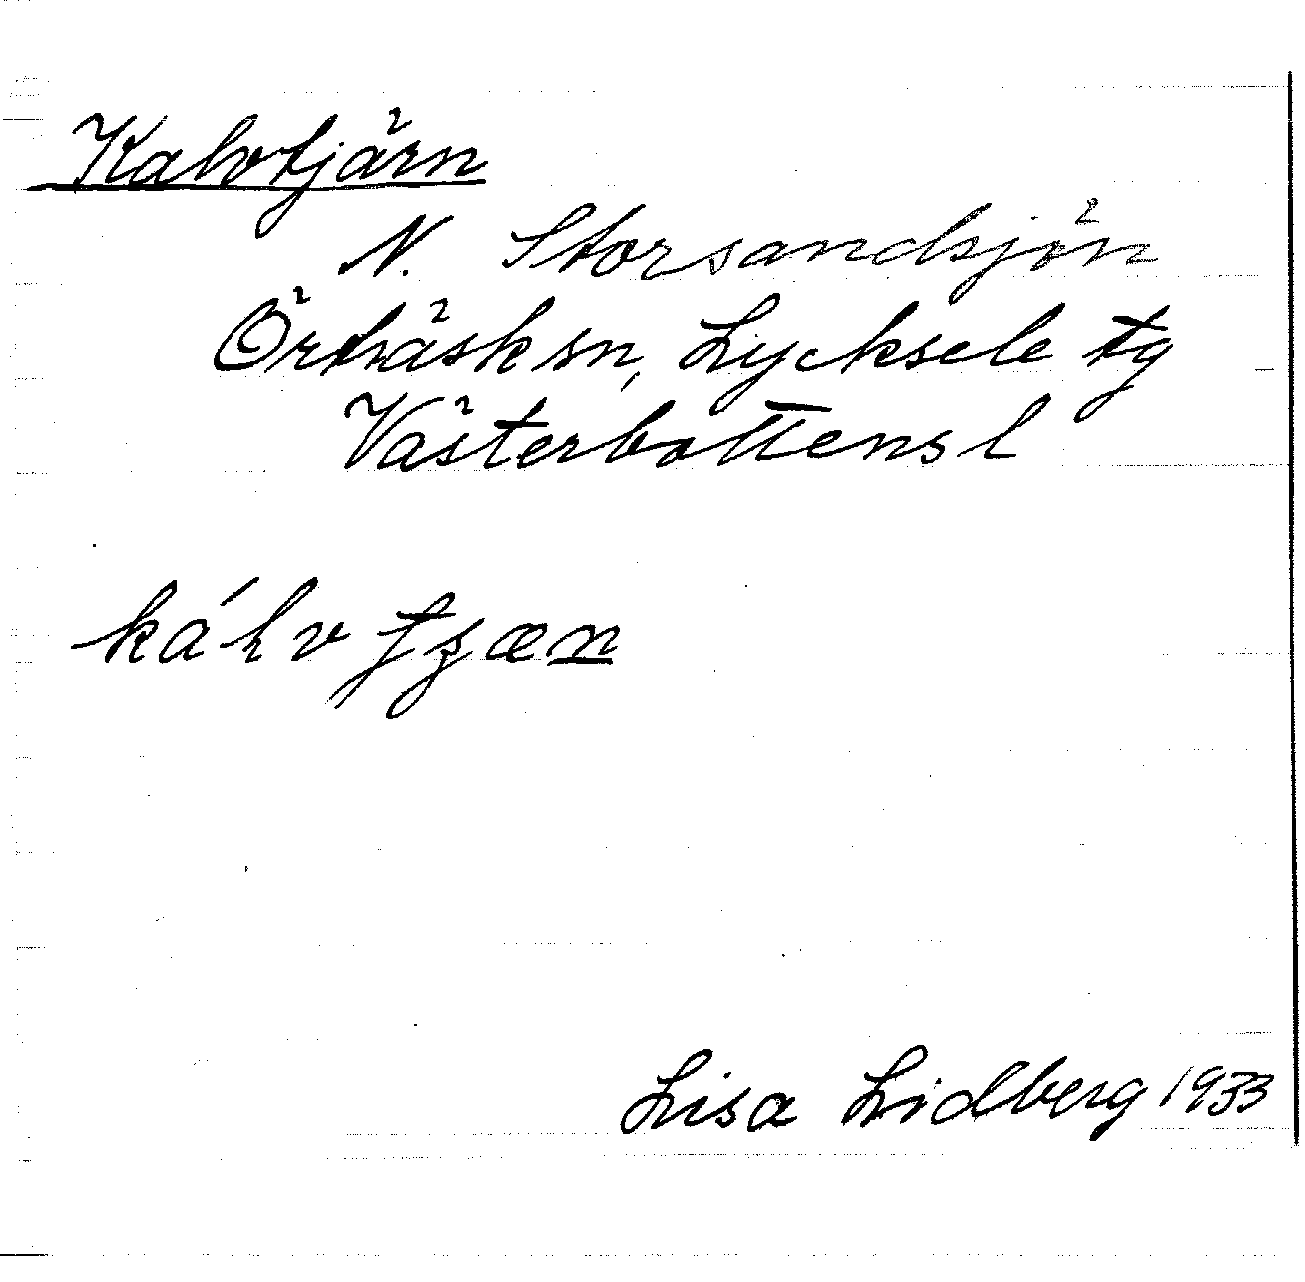 Kalvtjärn
N. Storsandsjön
Örträsk sn, Lycksele tg
Västerbottens l
Lisa Lidberg 1933